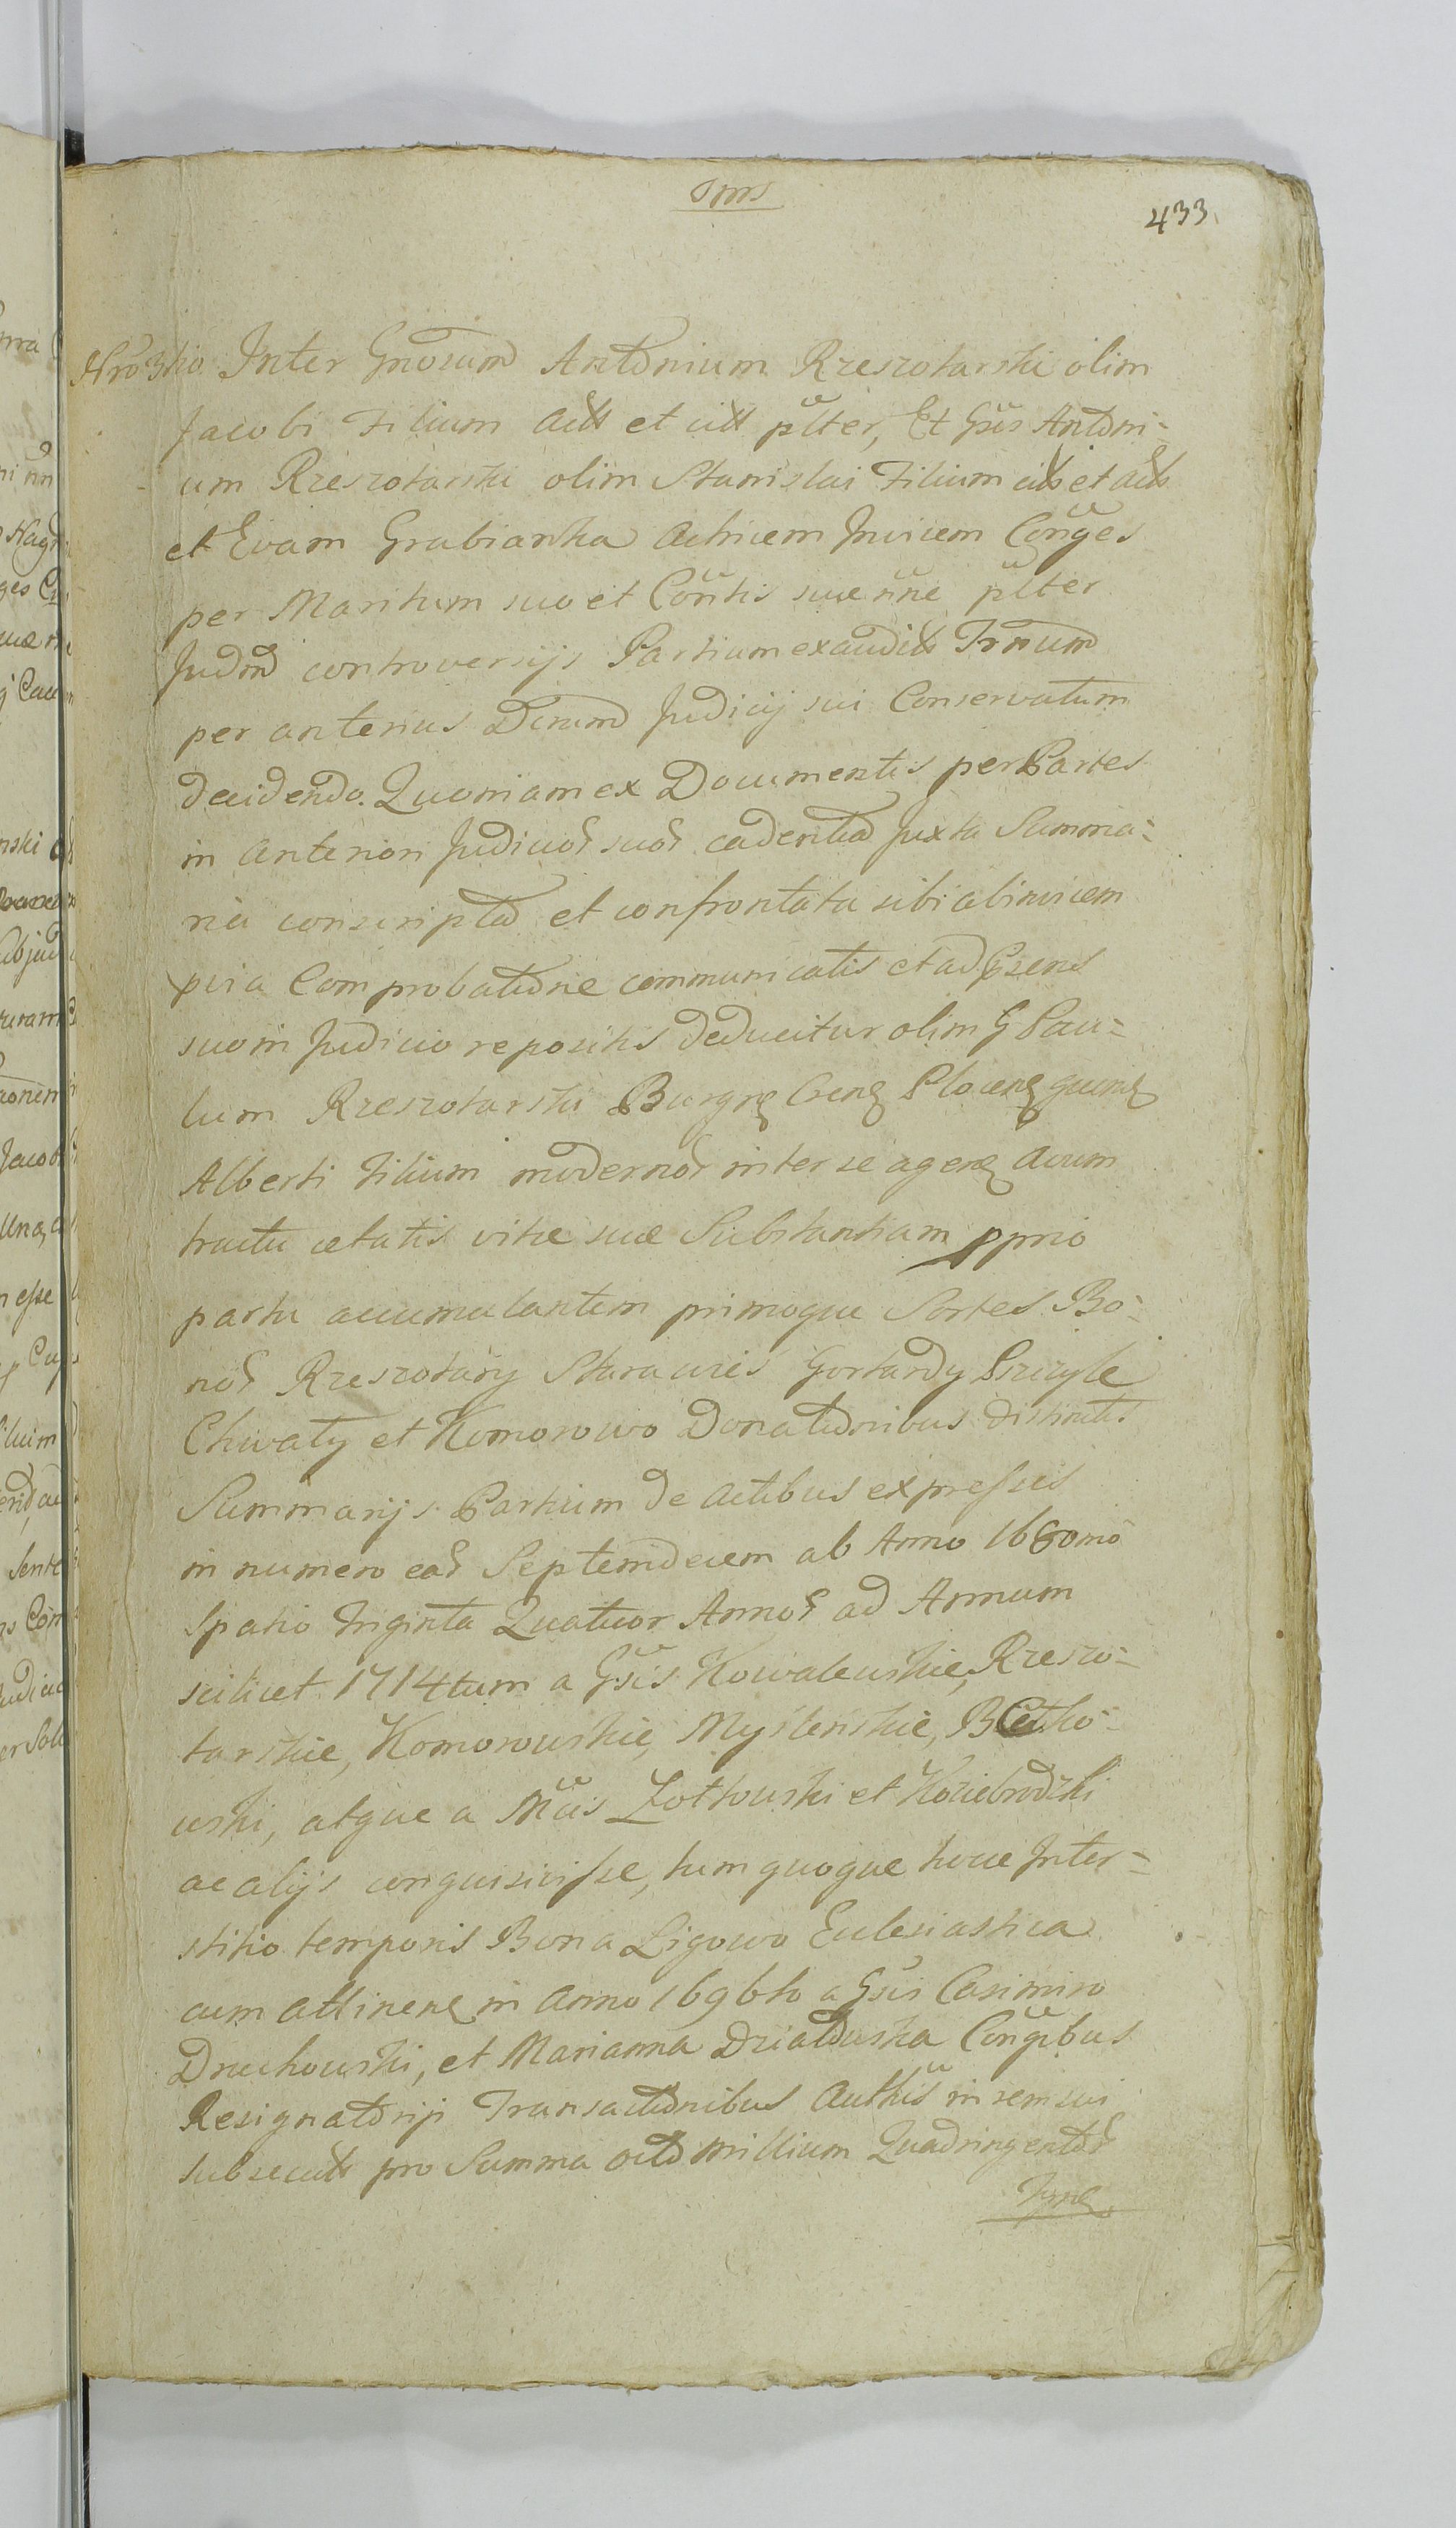 433
Nro 3tio Inter Gnosum Antonium Rzeszotarski olim
Jacobi Filium act et cit plter, Et Gsis Antoni-
um Rzeszotarski olim Stanislai Filium cit et act
et Evam Grabianka Acticem Invicem Conges
per Maritum suo et Contis suae nne plter
Judm controversijs Partium exauditis Trnum
per anterius Dcrum Judicij sui Conservatum
decidendo. Quoniam ex Documentis per Partes
in anteriori Judicior suor cadentia Juxta Summa-
ria conscripta et confrontata sibi abinvicem
pvia Comprobatione communicatis et ad Psens
suom Judicio repositis deducitur olim G Pau-
lum Rzeszotarski Burgr Crens Plocens
Alberti Filium modernor inter se agen avum
tractu aetatis vitae suae Substantiam pprio
partu accumulantem primoque Sortes Bo-
nor Rzeszotary Stara wies Gortardy Pszczele
Chwaty et Komorowo Donationibus distinctis
Summarijs Partium de actibus expressis
in numero ear Septemdecem ab Anno 1680mo
Spatio Triginta Quatuor Annor ad Annum
scilicet 1714tum a Gsis Kowalewskie, Rzeszo-
tarskie, Komorowskie, Myslenskie, Bętko-
wski, atque a Mcis Zołtowski et Koziebrodzki
ac alijs conquisivisse, tum quoque hocce Inter-
stitio temporis Bona Ligowo Ecclesiastica
cum attinen in Anno 1696to a Gsis Casimiro
Druchowski, et Marianna Działowska Congibus
Resignatorijs Transactionibus Authcis in rem sui
subsecutis pro Summa octo millium Quadringentor